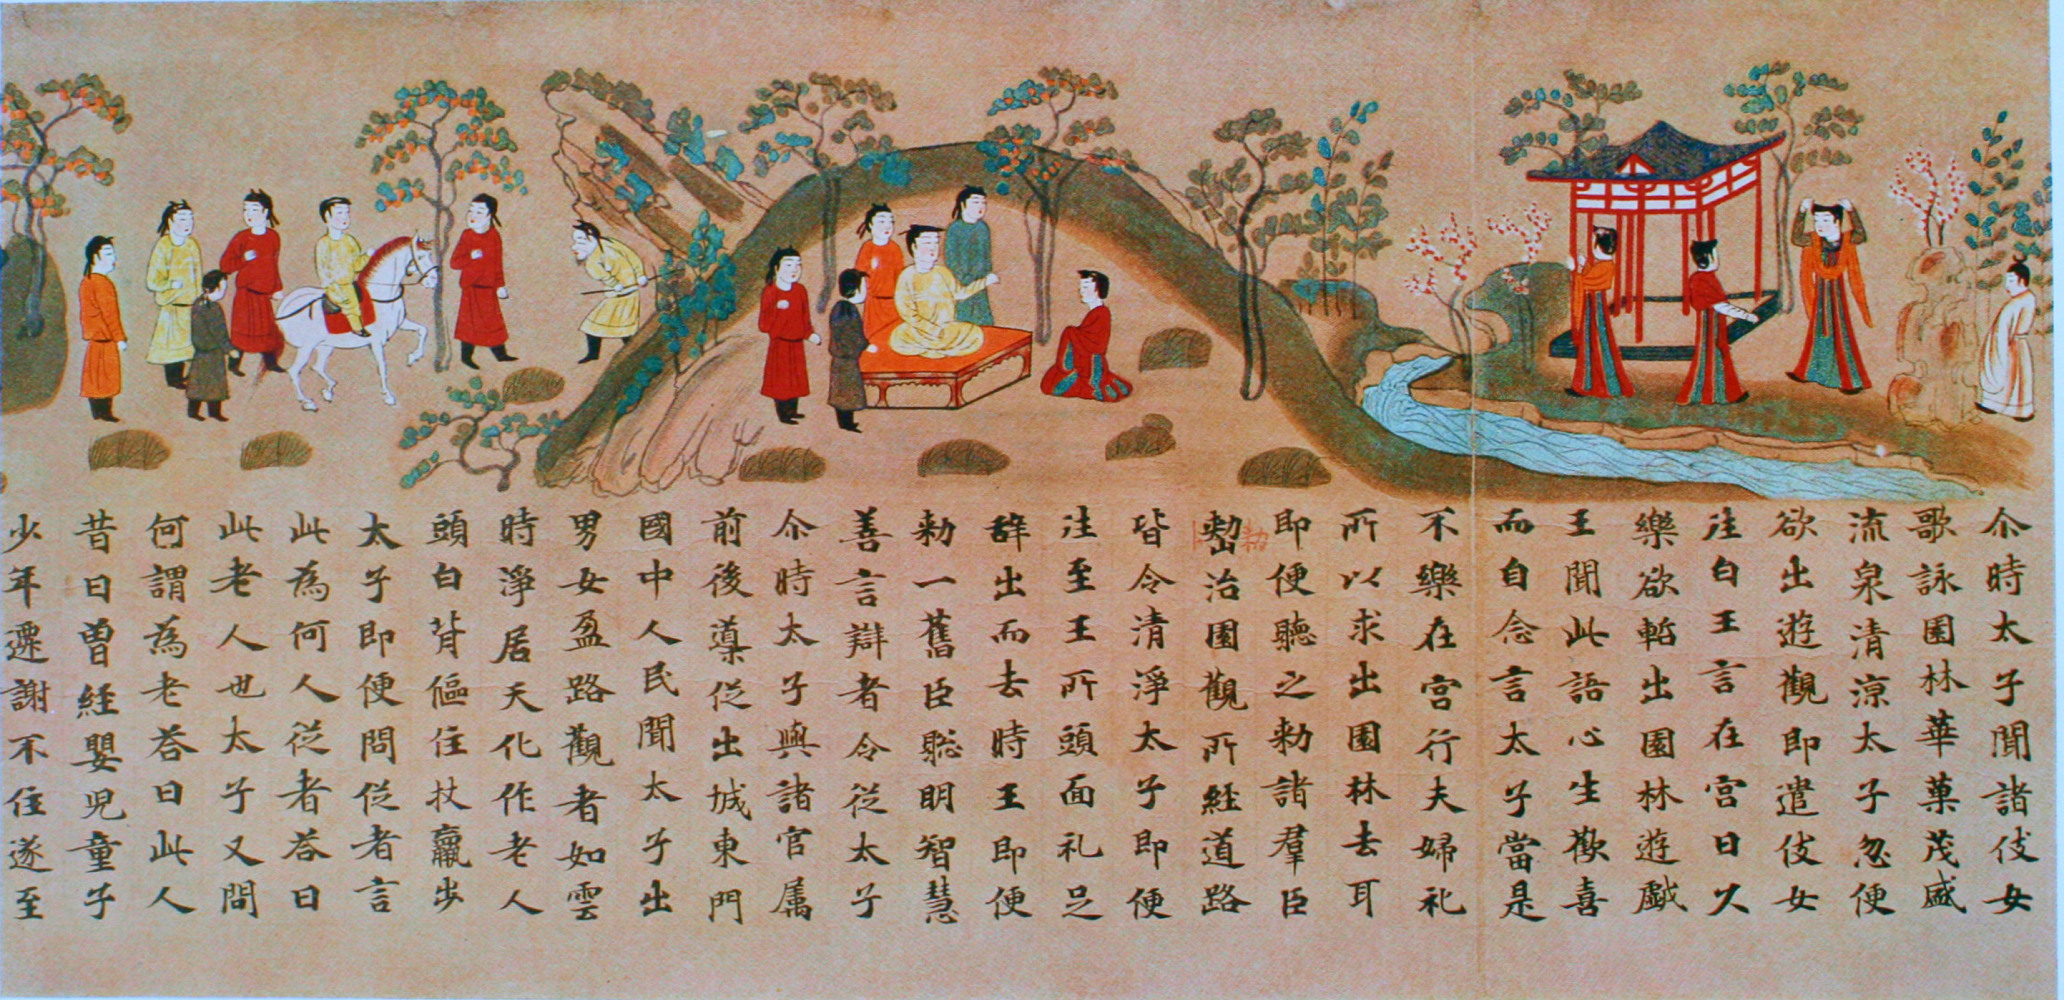 尒時太子聞諸伎女
歌詠園林華菓茂盛
流泉清涼太子忽便
欲出遊觀即遣伎女
往白王言在宮日久
樂欲暫出園林遊戯
王聞此語心生歡喜
而自念言太子當是
不樂在宮行夫婦礼
所以求出園林去耳
即便聽之勑諸羣臣
治園觀所経道路
皆令清淨太子即便
往至王所頭面礼足
辞出而去時王即便
勑一舊臣聡明智慧
善言辯者令従太子
尒時太子與諸官属
前後導従出城東門
國中人民聞太子出
男女盈路觀者如雲
時淨居天化作老人
頭白背傴住杖羸步
太子即便問従者言
此為何人従者荅曰
此老人也太子又問
何謂為老荅曰此人
昔日曽経嬰児童子
少年遷謝不住遂至